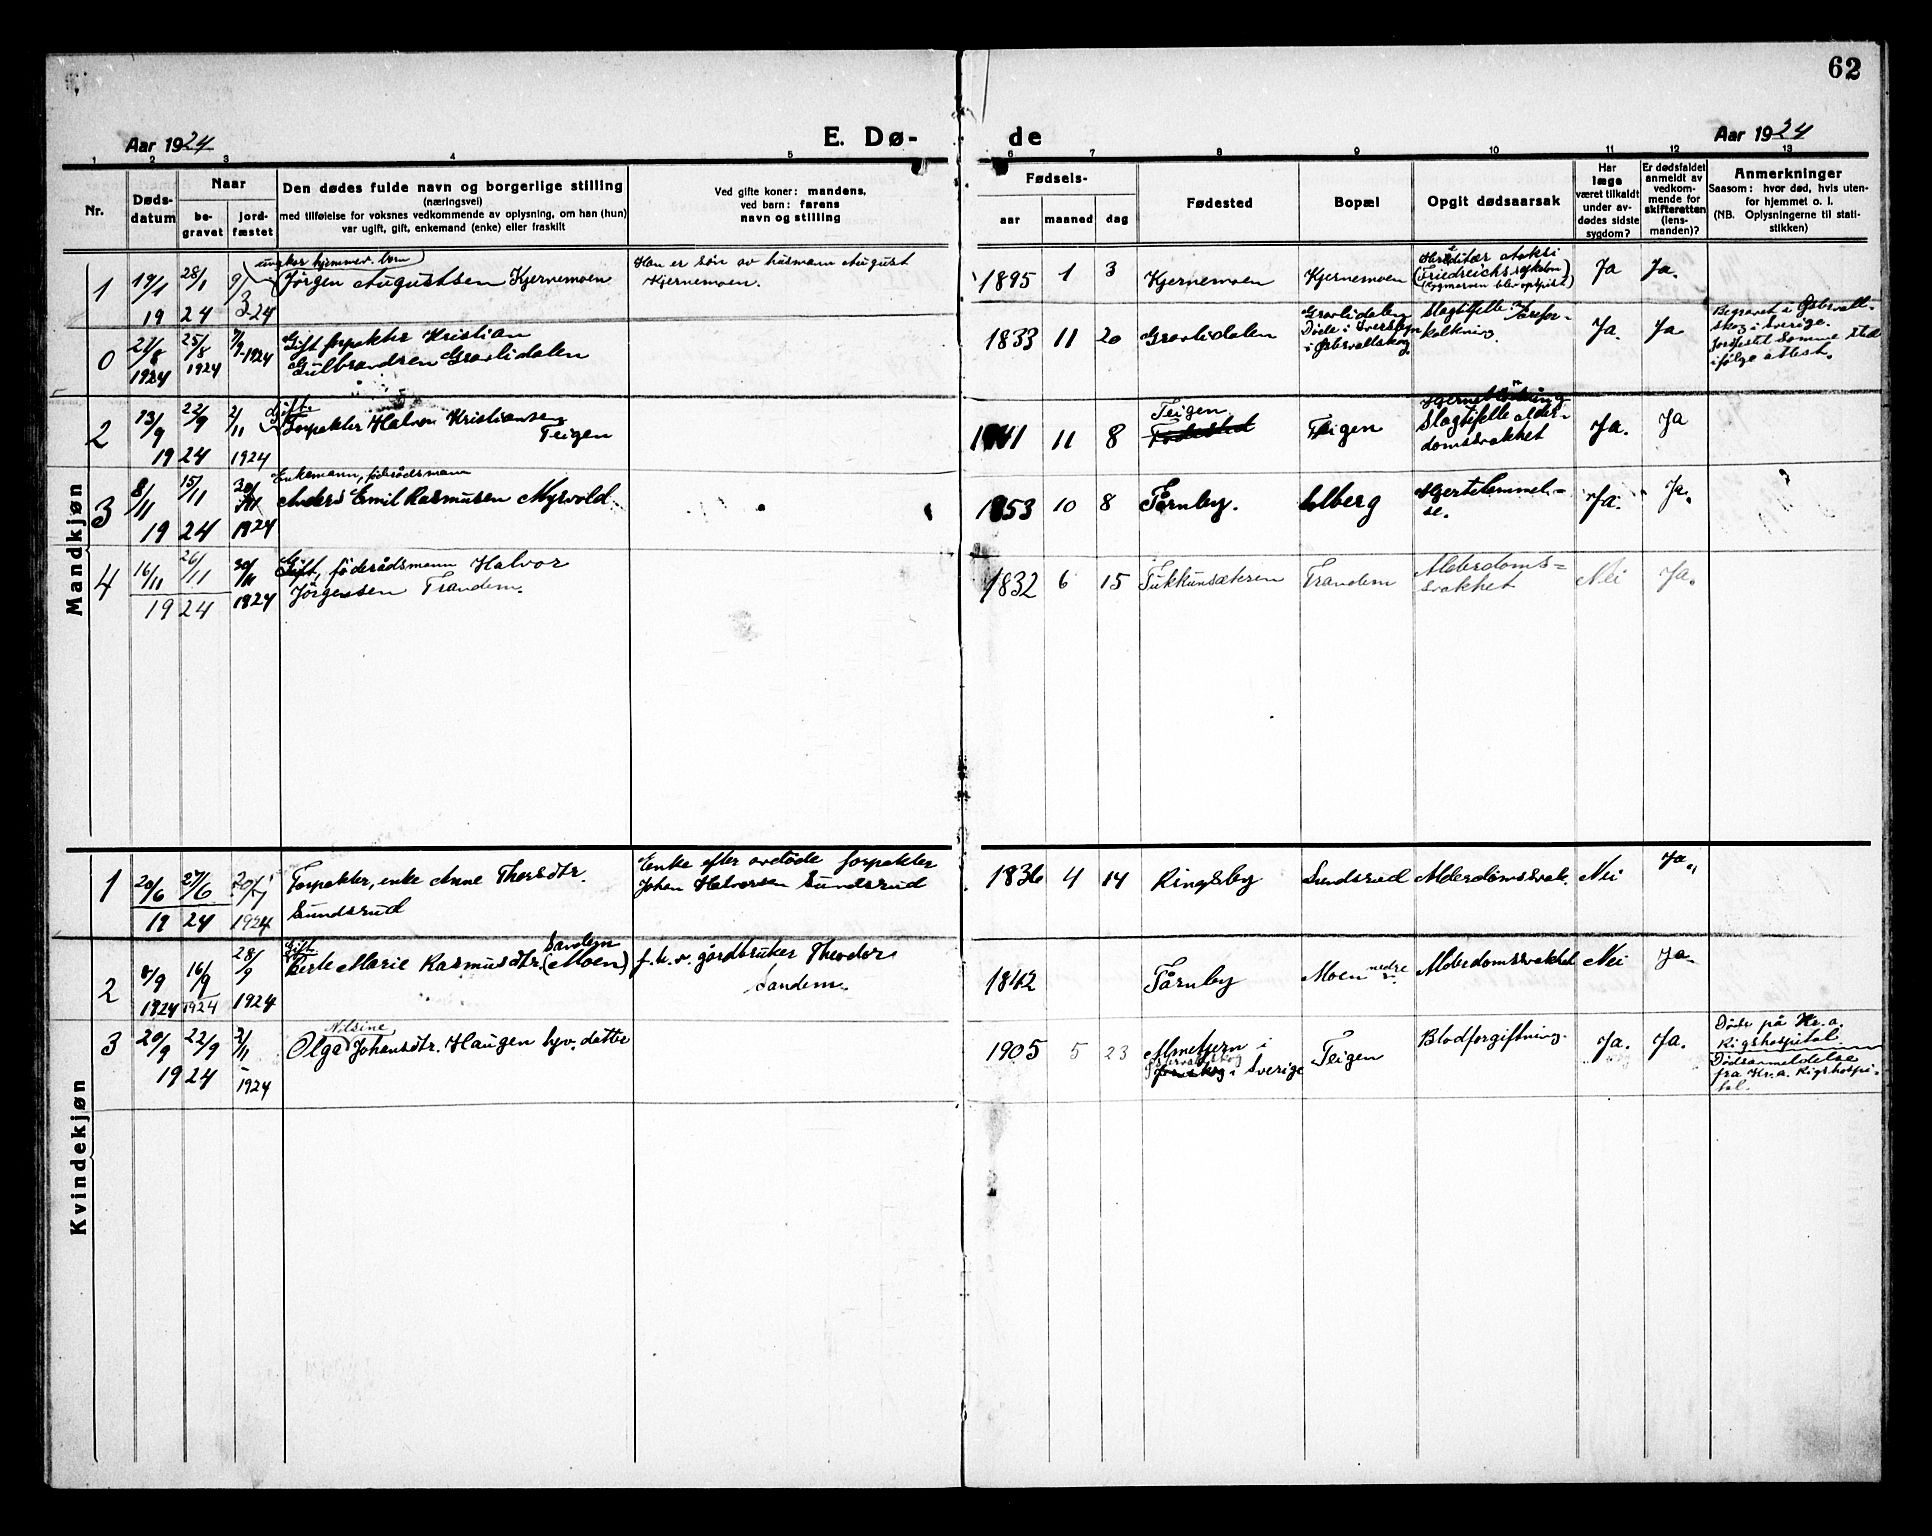 62
Aar 1924
E. Dø-
de
Aar 1924
1 2 3 4 5 6 7 8 9 10 11 12 13
Nr.
Døds-
datum
Naar
be-
gravet
jord-
fæstet
Den dødes fulde navn og borgerlige stilling
(næringsvei)
med tilføielse for voksnes vedkommende av oplysning, om han (hun)
var ugift, gift, enkemand (enke) eller fraskilt
Ved gifte koner: mandens,
ved barn: farens
navn og stilling
Fødsels-
aar
maaned
dag
Fødested
Bopæl
Opgit dødsaarsak
Har
læge
været tilkaldt
under av-
dødes sidste
sygdom?
Er dødsfaldet
anmeldt av
vedkom-
mende for
skifteretten
(lens-
manden)?
Anmerkninger
Saasom: hvor død, hvis uten-
for hjemmet o. l.
(NB. Oplysningerne til stati-
stikken)
Mandkjøn
1
19/1
19
28/1
24
9/3 24
ungkar hjemmev. barn
Jørgen Augustsen Kjernemoen
Han er søn av husmann August
Kjernemoen.
1895 1 3
Kjernemoen
Kjernemoen
Friedreichs
Ja
Ja.
0
21/8
1924
25/8
1924
7/9-1924
Gift forpakter Kristian
Gulbrandsen Gravlidalen
1833 11 20
Gravlidalen
Gravlidalen
Døde i
Slagtilfelle. Årefor-
kalkning.
Ja.
Ja
Begravet i
skog i Sverige.
Jordfestet samme sted
ifølge attest.
2
13/9
19
22/9
24
2/11
1924
gift.
Forpakter Halvor Kristiansen
Teigen
11 8
Teigen
Fødested
Teigen
Slagtilfelle alder-
domssvakhet
Ja.
Ja
3
8/11
19
15/11
24
1924
Enkemann, føderådsmann
Anders Emil Rasmusen Myrvold.
1853 10 8
Tårnby.
Elberg
Hjertelammel-
se.
Ja.
Ja.
4
16/11
19
26/11
24
30/11
1924
Gift, føderådsmann Halvor
Jörgensen Trandem.
1832 6 15
Trandem
Alderdoms=
svakhet
Nei
Ja.
Kvindekjøn
1
20/6
19
27/6
24
20/7
1924
Forpakter, enke Anne Thorsdtr.
Sundsrud
Enke efter avdøde forpakter
Johan Halvorsen Sundsrud
1836 4 14
Ringsby
Sundsrud
Alderdomssvak.
Nei
Ja.
2
4/9
1924
16/9
1924
28/9
1924
Gift.
Sandem
Berte Marie Rasmusdtr. (Moen)
f. h. v. gårdbruker Theodor
Sandem.
1842
Tårnby
Moen nedre
Alderdomssvakhet
Nei
Ja.
3
20/9
19
22/9
24
2/11
1924
Nilsine
Olga Johansdtr. Haugen hjv. datter
1905 5 23
i
i Sverige
Teigen
Blodforgiftning.
Ja.
Ja.
Døde på Kr.a.
Rigshospital.
Dødsanmeldelse
fra Kr.a. Rigshospi-
tal.